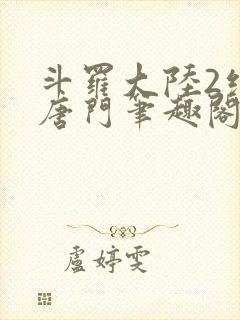 斗羅大陸2
唐門筆趣閣
盧婷雯